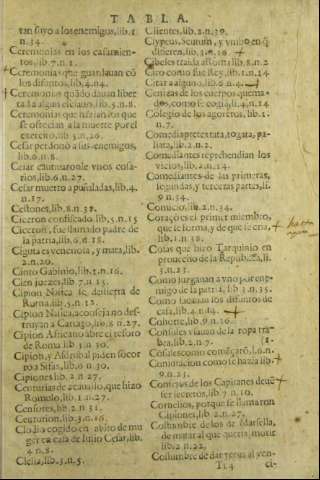 TABLA.
tan suyo a los enemigos, lib.1.
n.34.
Ceremonias en los casamien-
tos, lib.7.n.1.
Ceremonias que guardauan cõ
los difuntos, lib.4.n.4.
Ceremonias quãdo dauan liber
tad a algun esclauo, lib.3.n.8.
Ceremonias que hazian los que
se ofrecian a la muerte por el
exercito, lib.3.n.26.
Cesar perdonò a sus enemigos,
lib.6.n.8.
Cesar cautiuaronle vnos cosa-
rios, lib.6.n.27.
Cesar muerto a puñaladas, lib.4.
n.17.
Cestones, lib.8.n.32.
Ciceron confiscado, lib.3.n.15
Ciceron, fue llamado padre de
la patria, lib.6.n.18.
Ciguta es venenosa, y mata, lib.
2.n.20.
Cinto Gabinio, lib.1.n.16.
Cien juezes, lib.7.n.13.
Cipion Nasica se destierra de
Roma, lib.3.n.12.
Cipion Nasica, aconseja no des-
truyan a Cartago, lib.6.n.27.
Cipion Africano abre el tesoro
de Roma lib.3.n.30.
Cipion, y Asdrubal piden socor
ro a Sifas, lib.6.n.30.
Cipiones lib.2.n.27.
Centurias de acauallo, que hizo
Romulo, lib.1.n.27.
Censores, lib.2.n.31.
Centurion, lib.3.n.16.
Clodio cogido en abito de mu
ger en casa de Iulio Cesar, lib.
4.n.8.
Clelia, lib.3.n.5.
Clientes, lib.2.n.30.
Clypeus, scutum, y vmbo en q̃
difieren, lib.3.n.16
Cibeles traida a Roma lib.8.n.2
Ciro como fue Rey, lib.1.n.14
Citar a alguno, lib.6.n.4.
Cenizas de los cuerpos quema-
dos, como se cogiã, li.4.n.14
Colegio de los agoreros, lib.1.
n.7.
Comedia pretextata, togata, pa-
liata, lib.2.n.2.
Comediantes reprehendian los
vicios, lib.2.n.14.
Comediantes de las primeras,
segundas, y terceras partes, li.
9.n.34.
Comicio, lib.2.n.34.
Coraçõ es el primer miembro,
que se forma, y de que se cria,
lib.1.n.38.
Cosas que hizo Tarquinio en
prouecho de la Republica, li.
3.n.23.
Como juzgauan a vno por ene-
migo de la patria, lib.3.n.35.
Como sacauan los difuntos de
casa, lib.4.n.14.
Cohorte, lib.9.n.16.
Consules vsauan de la ropa tra-
bea, lib.2.n.7.
Cõsules como começarõ, l.6.n.
Conuocacion como se hazia lib.
9.n.25.
Consejos de los Capitanes deuẽ
ser secretos, lib.7.n.10.
Cornelios, porque se llamaron
Cipiones, lib.2.n.27.
Costumbre de los de Marsella,
de matar al que queria morir
lib.2.n.22.
Costumbre de dar yeruas al ven-
Tt 4 ci-